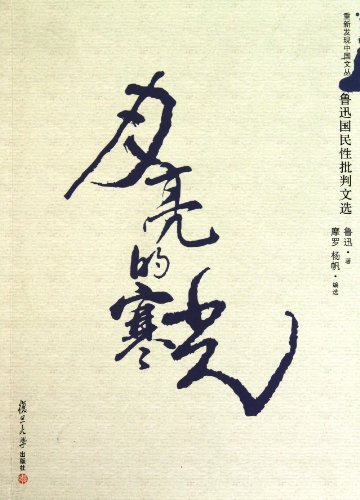 重新发现中国文丛
鲁迅国民性批判文选
鲁迅·著
摩罗 杨帆·编选
月亮的寒光
復旦大学出版社